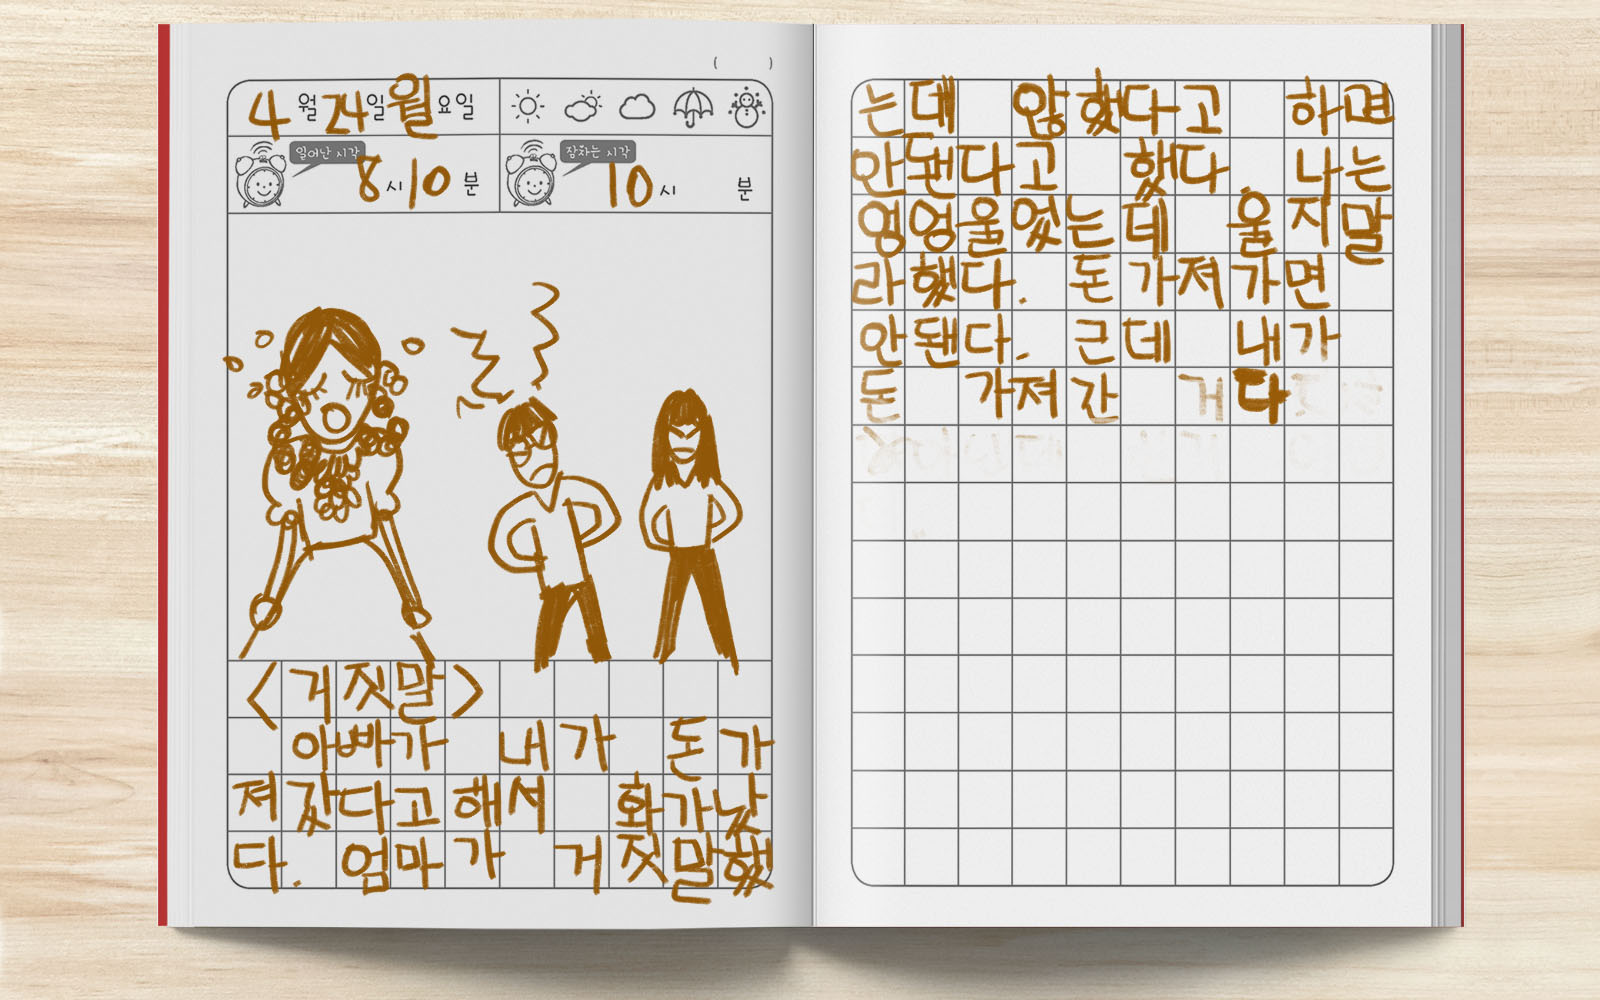 ( )
4 월 24 일 월 요일
일어난 시각 8 시 10 분
잠자는 시각 10 시 분
<거짓말>
아빠가 내가 돈 가
져갔다고 해서 화가났
다. 엄마가 거짓말했
는데 않했다고 하면
안됀다고 했다 나는
엉엉울었는데 울지말
라했다. 돈 가져가면
안됀다. 근데 내가
돈 가져간 거다